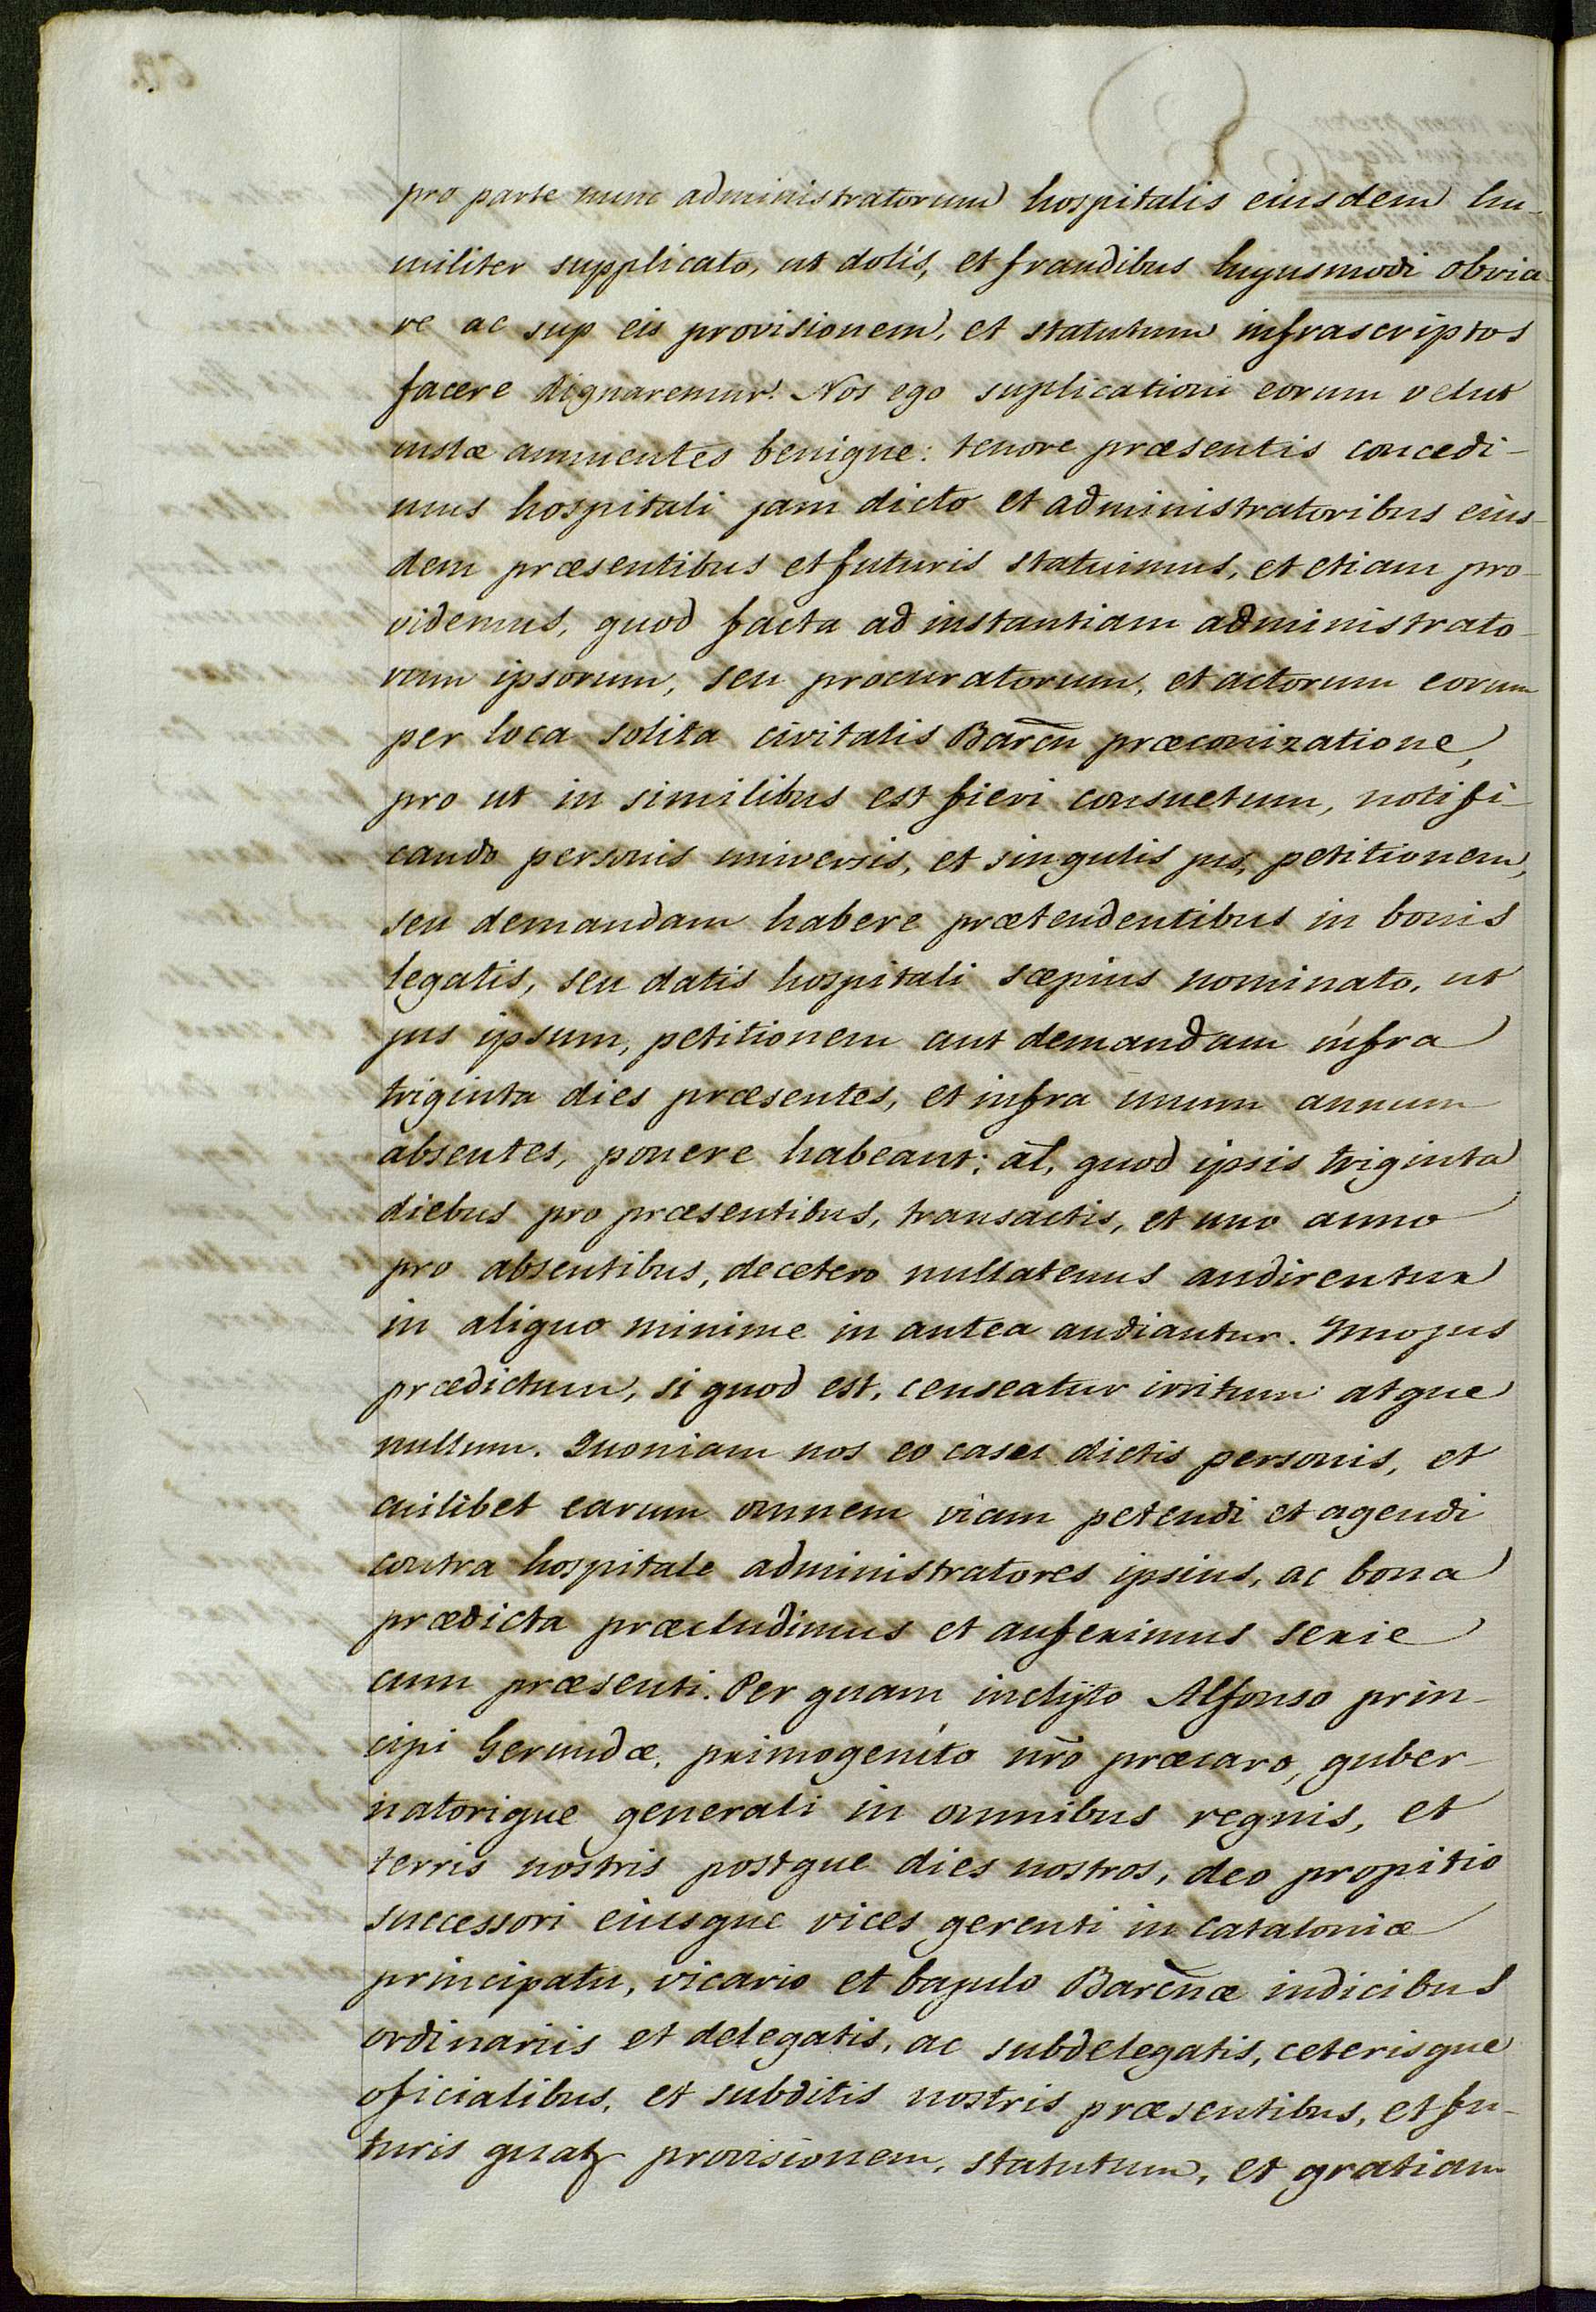 pro parte nunc administratorum hospitalis eiusdem hu-
militer supplicato, ut dolis, et fraudibus hujusmodi obvia-
re ac sup eis provisionem, et statutum infrascriptos
facere dignaremur. Nos ego suplicationi eorum velut
iustæ annuentes benigne: tenore præsentis concedi-
mus hospitali jam dicto et administratoribus eius-
dem præsentibus et futuris statuimus, et etiam pro-
videmus, quod facta ad instantiam administrato-
rum ipsorum, seu procuratorum, et actorum eorum
per loca solita civitatis Barcn̄ præconizatione,
pro ut in similibus est fieri consuetum, notifi-
cando personis universis, et singulis jus, petitionem,
seu demandam habere prætendentibus in bonis
legatis, seu datis hospitali sæpius nominato, ut
jus ipsum, petitionem aut demandam infra
triginta dies præsentes, et infra unum annum
absentes, ponere habeant; al̄, quod ipsis triginta
diebus pro præsentibus, transactis, et uno anno
pro absentibus, decetero nullatenus audirentur
in aliquo minime in antea audiantur. Imo jus
prædictum, si quod est, censeatur irritum atque
nullum. Quoniam nos eo casu dictis personis, et
cuilibet earum omnem viam petendi et agendi
contra hospitale administratores ipsius, ac bona
prædicta præcludimus et auferimus serie
cum præsenti. Per quam inclyto Alfonso prin-
cipi Gerundæ, primogenito nr̄o præcaro, guber-
natorique generali in omnibus regnis, et
terris nostris postque dies nostros, deo propitio
successori eiusque vices gerenti in cataloniæ
principatu, vicario et bajulo Barcn̄æ iudicibus
ordinariis et delegatis, ac subdelegatis, ceterisque
oficialibus, et subditis nostris præsentibus, et fu-
turis quatz provisionem, statutum, et gratiam